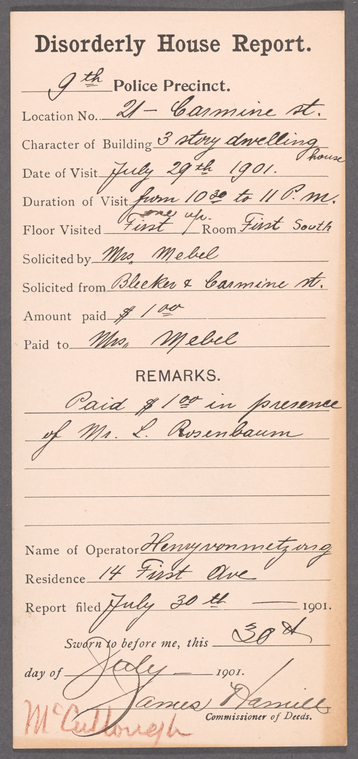 Disorderly House Report.
9th Police Precinct.
Location No. 21 - Carmine st.
Character of Building 3 story dwelling house
Date of Visit July 29th 1901.
Duration of Visit from 10 30 to 11 P.m.
one up.
Floor Visited First Room First South
Solicited by Mrs. Mebel
Solicited from Blecker & Carmine st.
Amount paid $1 00
Paid to Mrs. Mebel
REMARKS.
Paid $1 00 in presence
of Mr. L. Rosenbaum
Name of Operator Henry von metzing
Residence 14 First Ave
Report filed July 30th — 1901.
Sworn to before me, this 30th
day of July — 1901.
James Hamill
Commissioner of Deeds.
McCullough